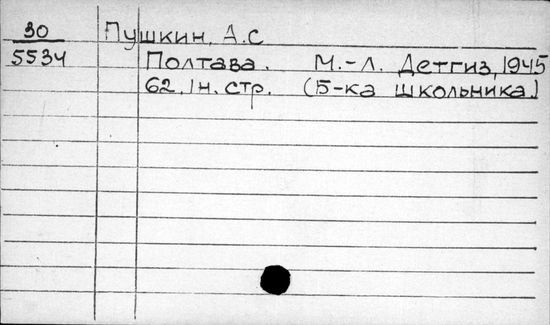 30 Пушкин, А.С
5534 Полтава. М.-Л. Детгиз, 1945
62, 1н. стр. (Б-ка школьника.)